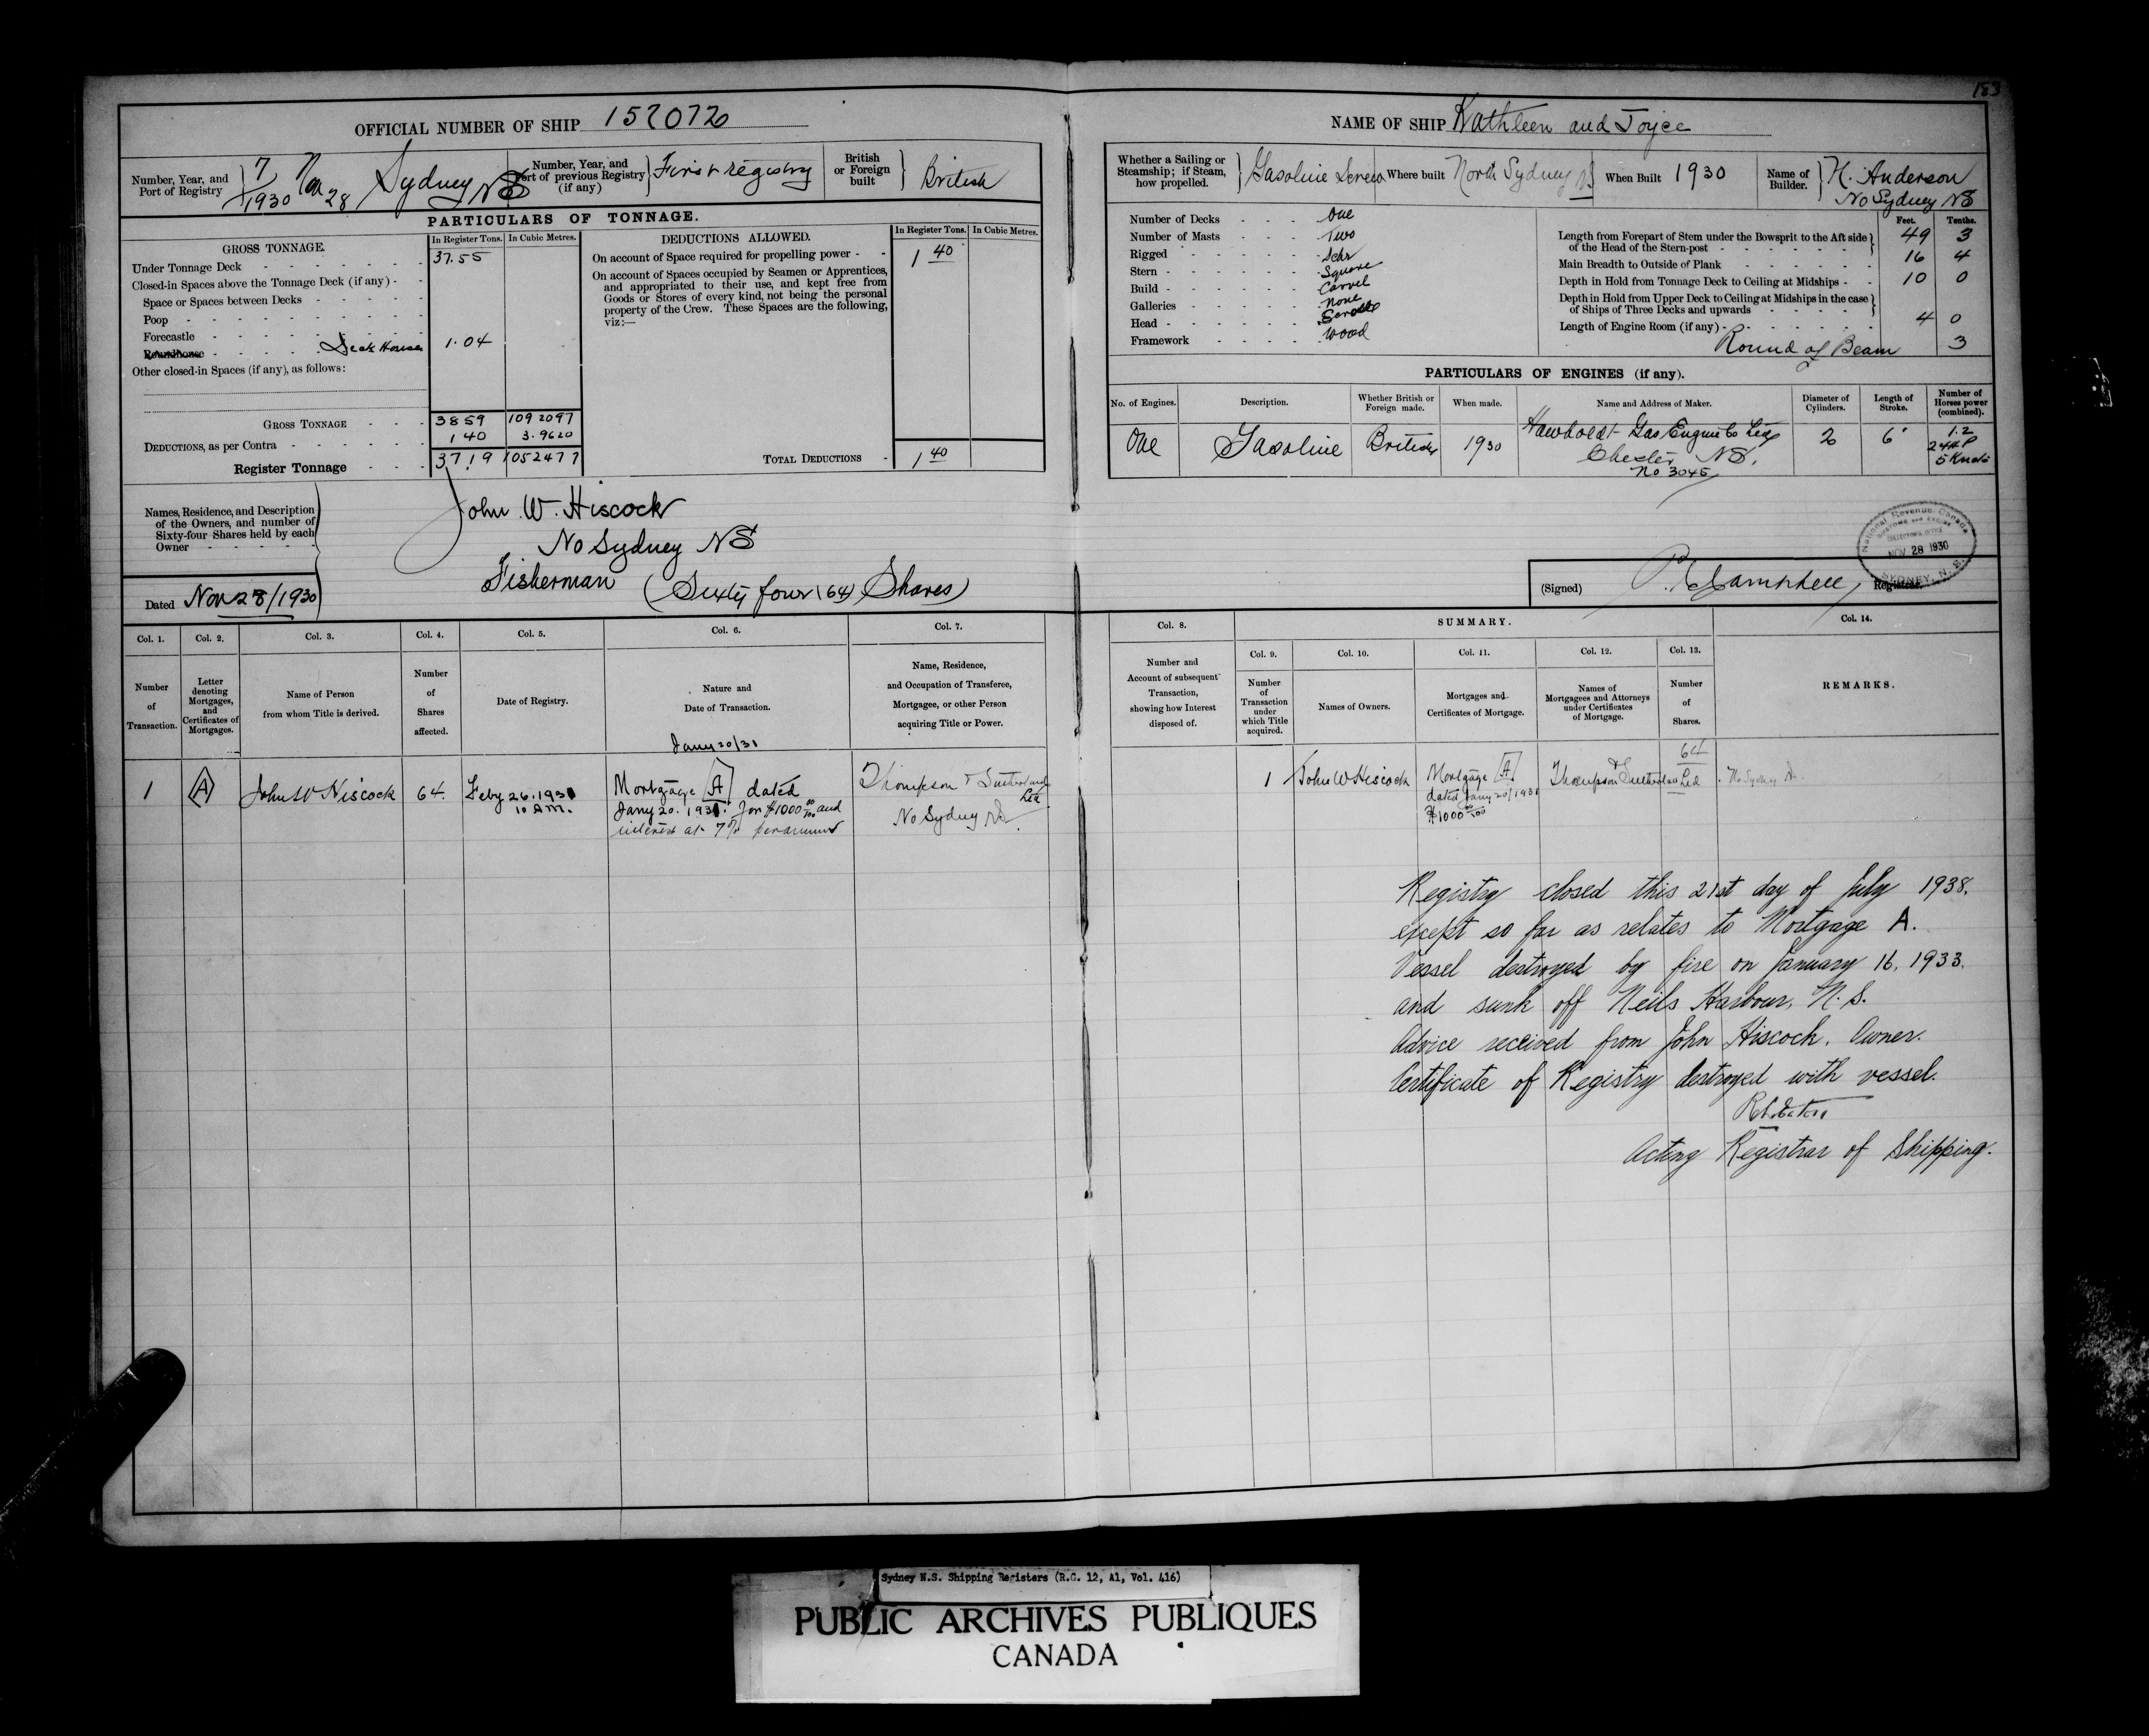 183
OFFICIAL NUMBER OF SHIP 152072
NAME OF SHIP Kathleen and Joyce
Number, Year, and Port of Registry
7/1930 Nov 28 Sydney NS
Number, Year, and Port of previous Registry (if any)
First registry
British or Foreign built
British
PARTICULARS OF TONNAGE.
GROSS TONNAGE.
In Register Tons.
In Cubic Metres.
Under Tonnage Deck 37.55
Closed-in Spaces above the Tonnage Deck (if any)
Space or Spaces between Decks
Poop
Forecastle
Roundhouse Deck House 1.04
Other closed-in Spaces (if any), as follows:
GROSS TONNAGE 38 59 109 2097
DEDUCTIONS, as per Contra 1 40 3.9620
Register Tonnage 37.19 105247 7
DEDUCTIONS ALLOWED.
In Register Tons.
In Cubic Metres.
On account of Space required for propelling power 1 40
On account of Spaces occupied by Seamen or Apprentices,
and appropriated to their use, and kept free from
Goods or Stores of every kind, not being the personal
property of the Crew. These Spaces are the following,
viz:—
TOTAL DEDUCTIONS 1 40
Names, Residence, and Description
of the Owners, and number of
Sixty-four Shares held by each
Owner
John W. Hiscock
No Sydney NS
Fisherman (Sixty four (64) Shares)
Dated Nov 28/1930
Whether a Sailing or Steamship; if Steam, how propelled.
Gasoline Screw
Where built North Sydney NS
When Built 1930
Name of Builder.
H. Anderson
No Sydney NS
Number of Decks One
Number of Masts Two
Rigged Schr
Stern Square
Build Carvel
Galleries None
Head Scroll
Framework Wood
Feet. Tenths.
Length from Forepart of Stem under the Bowsprit to the Aft side of the Head of the Stern-post 49 3
Main Breadth to Outside of Plank 16 4
Depth in Hold from Tonnage Deck to Ceiling at Midships 10 0
Depth in Hold from Upper Deck to Ceiling at Midships in the case of Ships of Three Decks and upwards
Length of Engine Room (if any) 4 0
Round of Beam 3
PARTICULARS OF ENGINES (if any).
No. of Engines.
Description.
Whether British or Foreign made.
When made.
Name and Address of Maker.
Diameter of Cylinders.
Length of Stroke.
Number of Horses power (combined).
One
Gasoline
British
1930
Hawboldt Gas Engine Co Ltd
Chester NS.
No 3045
2
6"
1.2
24 HP
5 Knots
National Revenue Canada
CUSTOMS AND EXCISE
COLLECTOR'S OFFICE
NOV 28 1930
SYDNEY, N. S.
(Signed) Campbell, Registrar.
Col. 1.
Number of Transaction.
Col. 2.
Letter denoting Mortgages, and Certificates of Mortgages.
Col. 3.
Name of Person from whom Title is derived.
Col. 4.
Number of Shares affected.
Col. 5.
Date of Registry.
Col. 6.
Nature and Date of Transaction.
Col. 7.
Name, Residence, and Occupation of Transferee, Mortgagee, or other Person acquiring Title or Power.
Col. 8.
Number and Account of subsequent Transaction, showing how Interest disposed of.
SUMMARY.
Col. 9.
Number of Transaction under which Title acquired.
Col. 10.
Names of Owners.
Col. 11.
Mortgages and Certificates of Mortgage.
Col. 12.
Names of Mortgagees and Attorneys under Certificates of Mortgage.
Col. 13.
Number of Shares.
Col. 14.
REMARKS.
1
A
John W Hiscock
64.
Feby 26. 1931
10 A.M.
Jany 20/31
Mortgage A dated
Jany 20. 1931. for $1000 00/100 and
interest at 7% per annum
Thompson & Sutherland
Ltd
No Sydney NS
1
John W Hiscock
Mortgage A
dated Jany 20/1931
$1000 00/100
Thompson & Sutherland Ltd
64
No Sydney NS.
Registry closed this 21st day of July 1938.
except so far as relates to Mortgage A.
Vessel destroyed by fire on January 16, 1933.
and sunk off Neils Harbour, N. S.
Advice received from John Hiscock, Owner.
Certificate of Registry destroyed with vessel.
Acting Registrar of Shipping.
Sydney N.S. Shipping Registers (R.G. 12, A1, Vol. 416)
PUBLIC ARCHIVES PUBLIQUES
CANADA